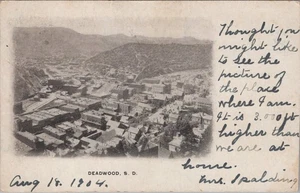 Thought you
might like
to see the
picture of
the place
where I am.
It is 3.000 ft
higher than
we are at
home.
Mrs. Spalding
DEADWOOD, S. D.
Aug 18. 1904.